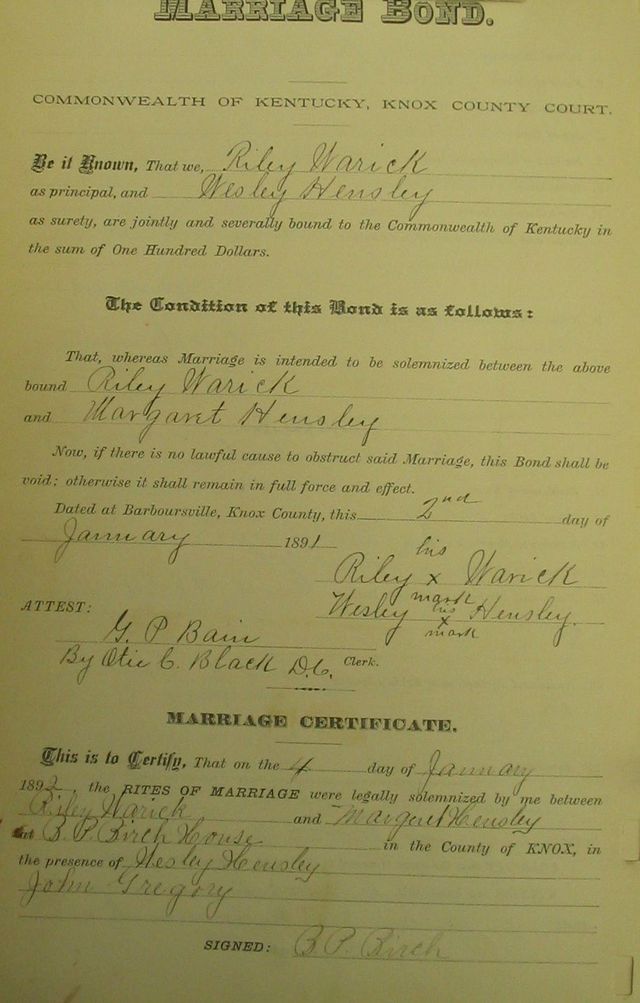 MARRIAGE BOND.
COMMONWEALTH OF KENTUCKY, KNOX COUNTY COURT.
Be it Known, That we, Riley Warick
as principal, and Wesley Hensley
as surety, are jointly and severally bound to the Commonwealth of Kentucky in
the sum of One Hundred Dollars.
The Condition of this Bond is as follows:
That, whereas Marriage is intended to be solemnized between the above
bound Riley Warick
and Margaret Hensley
Now, if there is no lawful cause to obstruct said Marriage, this Bond shall be
void; otherwise it shall remain in full force and effect.
Dated at Barboursville, Knox County, this 2nd day of
January 1891
his
Riley x Warick
mark
ATTEST:
his
Wesley x Hensley.
mark
G. P Bain
By Otie C. Black D.C. Clerk.
MARRIAGE CERTIFICATE.
This is to Certify, That on the 4 day of January
1892, the RITES OF MARRIAGE were legally solemnized by me between
Riley Warick and Margaret Hensley
at B. P. Birch House in the County of KNOX, in
the presence of Wesley Hensley
John Gregory
SIGNED: B. P. Birch